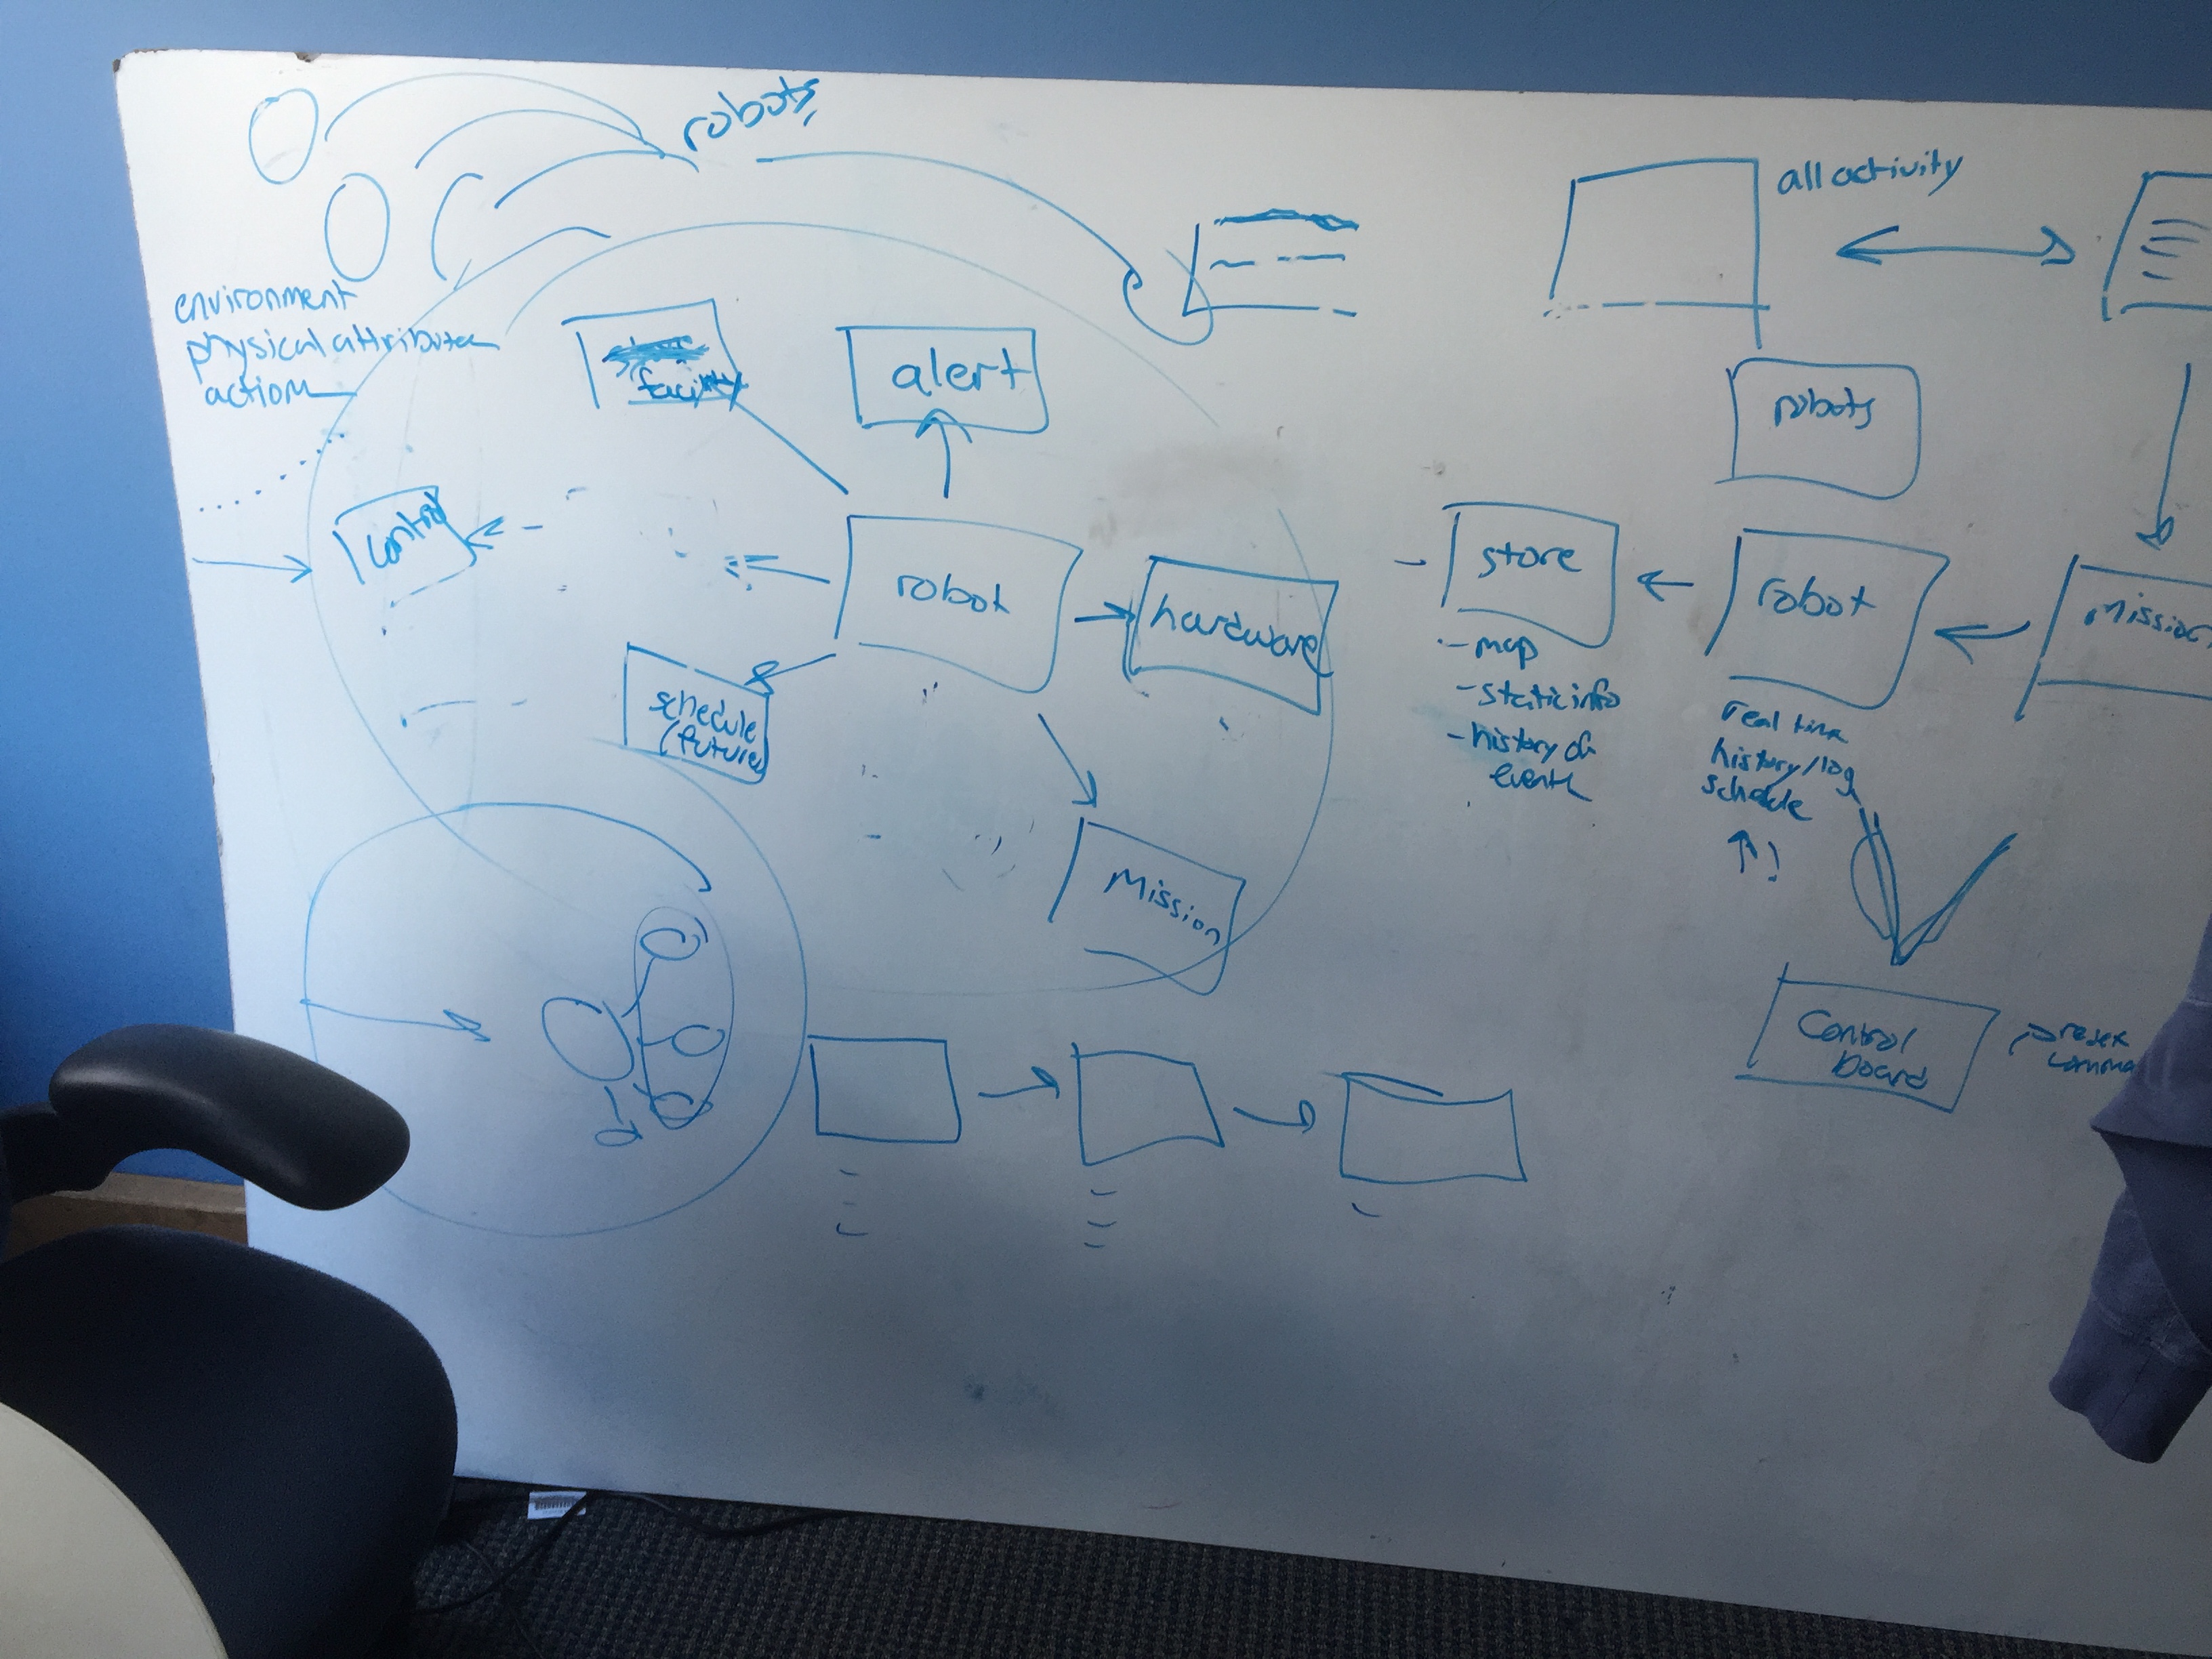 robots
environment
physical attributes
action
facility
alert
control
robot
hardware
schedule
(future)
Mission
all activity
robots
store
- map
- static info
- history of
events
robot
real time
history/log
schedule
Mission
Control
board